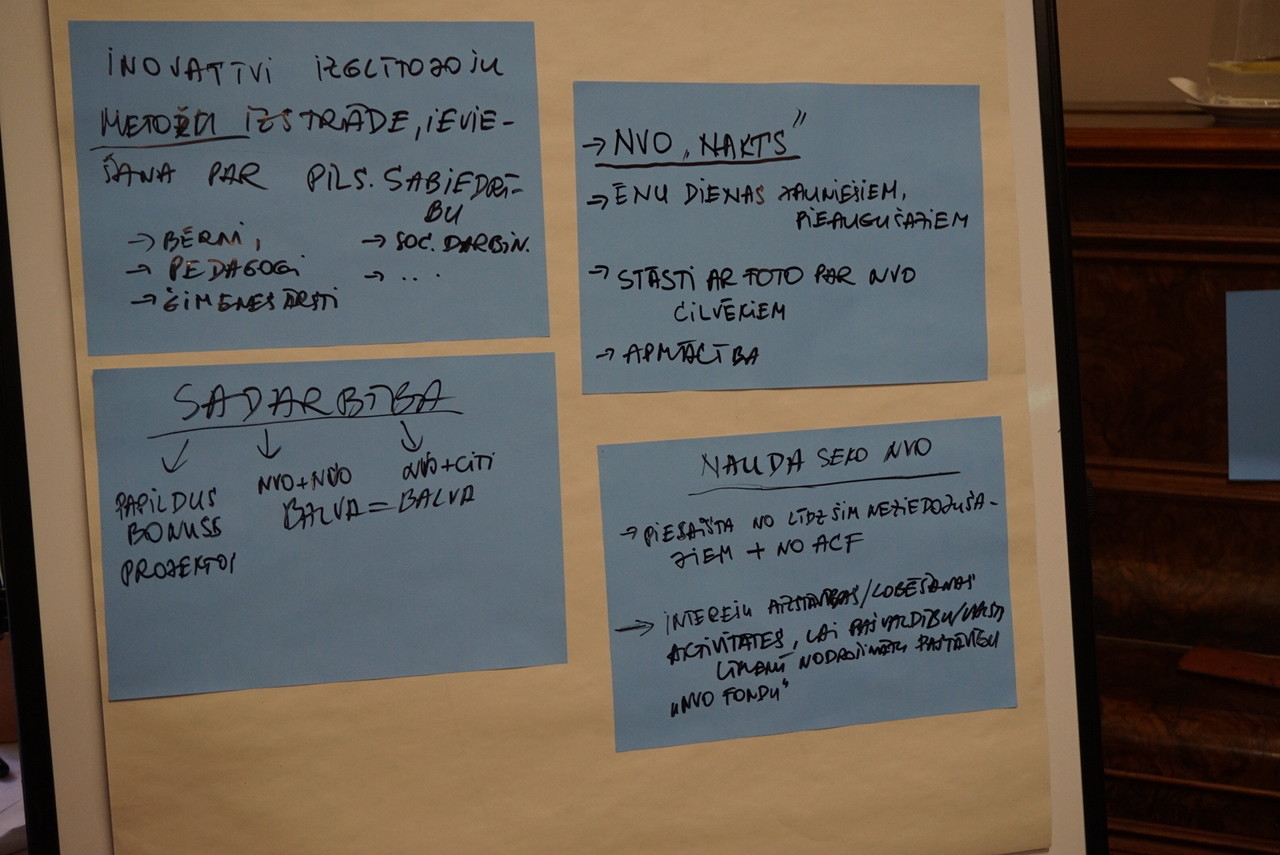 INOVATĪVI IZGLĪTOJOŠU
METOŽU IZSTRĀDE, IEVIE-
ŠANA PAR PILS. SABIEDRĪ-
BU
→ BĒRNI,
→ PEDAGOGI
→ ĢIMENES ĀRSTI
→ SOC. DARBIN.
→ ...
→ NVO „NAKTS”
→ ĒNU DIENAS JAUNIEŠIEM,
PIEAUGUŠAJIEM
→ STĀSTI AR FOTO PAR NVO
CILVĒKIEM
→ APMĀCĪBA
SADARBĪBA
↙ ↓ ↘
PAPILDUS
BONUSS
PROJEKTOS
NVO+NVO
BALVA = BALVA
NVO+CITI
NAUDA SEKO NVO
→ PIESAISTA NO LĪDZŠIM NEZIEDOJUŠA-
JIEM + NO ACF
→ INTEREŠU AIZSTĀVĪBAS/LOBĒŠANAS
ACTIVITĀTES, LAI PAŠVALDĪBU/VALSTS
LĪMENĪ NODROŠINĀTU PASTĀVĪGU
„NVO FONDU“